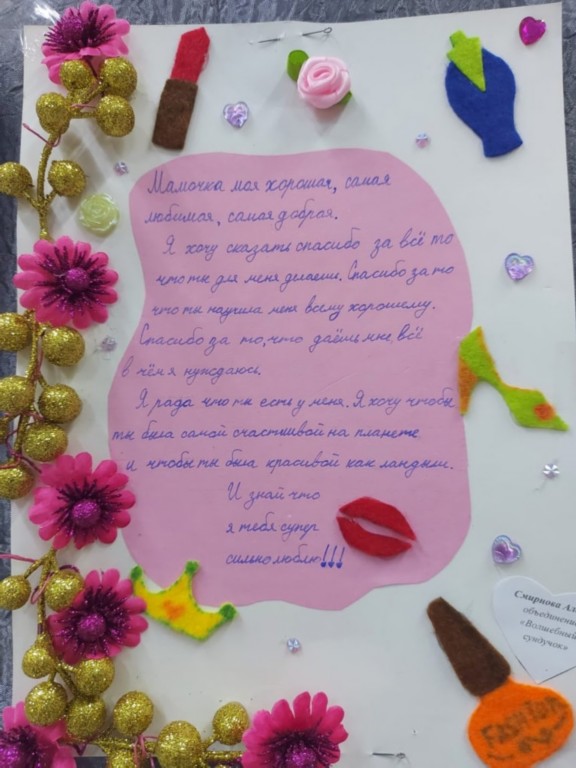 Мамочка моя хорошая, самая
любимая, самая добрая.
Я хочу сказать спасибо за всё то
что ты для меня делаешь. Спасибо за то
что ты научила меня всему хорошему.
Спасибо за то, что даёшь мне, всё
в чём я нуждаюсь.
Я рада что ты есть у меня. Я хочу чтобы
ты была самой счастливой на планете
и чтобы ты была красивой как ландыш.
И знай что
я тебя супер
сильно люблю!!!
Смирнова
объединение
«Волшебный
сундучок»
FASHION